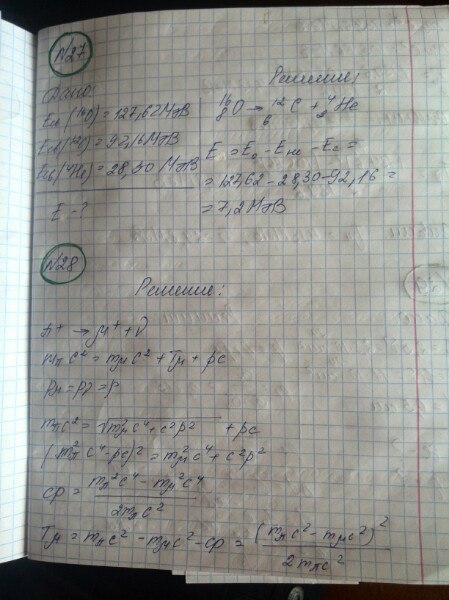 №27
Дано:
Eсв(¹⁶O) = 127,62 МэВ
Eсв(¹²C) = 92,16 МэВ
Eсв(⁴He) = 28,30 МэВ
E - ?
Решение:
¹⁶₈O → ¹²₆C + ⁴₂He
E = E₀ - E_He - E_c =
= 127,62 - 28,30 - 92,16 =
= 7,2 МэВ
№28
Решение:
π⁺ → μ⁺ + ν
m_π c² = m_μ c² + T_μ + pc
p_μ = p_ν = p
m_π c² = √(m_μ² c⁴ + c²p²) + pc
(m_π² c⁴ - pc)² = m_μ² c⁴ + c²p²
cp = (m_π² c⁴ - m_μ² c⁴) / (2m_π c²)
T_μ = m_π c² - m_μ c² - cp = (m_π c² - m_μ c²)² / (2m_π c²)